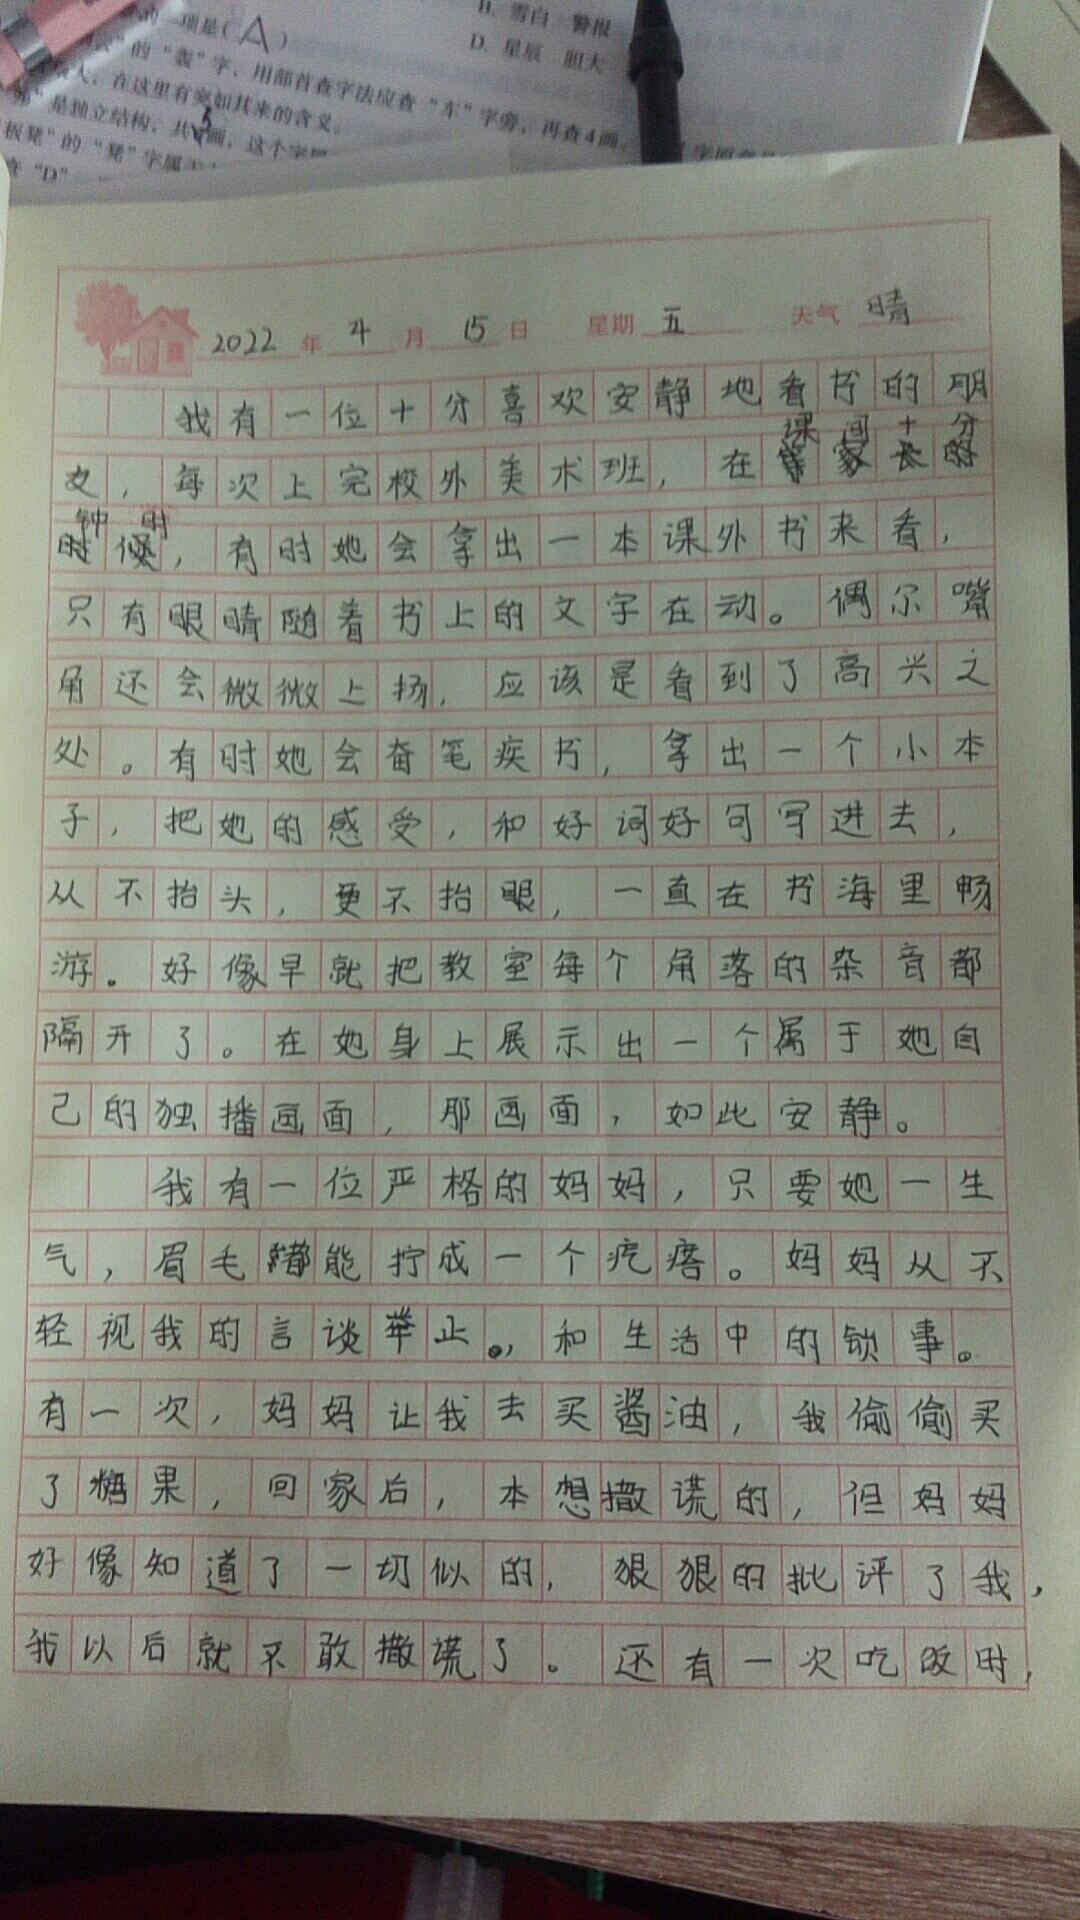 项是(A)
B. 雪白 警报
D. 星辰 胆大
的“轰”字，用部首查字法应查“车”字旁，再查4画。
在这里有突如其来的含义。
是独立结构，共5画，这个字
板凳”的“凳”字属
“D”
2022年4月15日 星期五 天气晴
我有一位十分喜欢安静地看书的朋
友，每次上完校外美术班，在课间十分
钟时，有时她会拿出一本课外书来看，
只有眼睛随着书上的文字在动。偶尔嘴
角还会微微上扬，应该是看到了高兴之
处。有时她会奋笔疾书，拿出一个小本
子，把她的感受，和好词好句写进去，
从不抬头，更不抬眼，一直在书海里畅
游。好像早就把教室每个角落的杂音都
隔开了。在她身上展示出一个属于她自
己的独播画面，那画面，如此安静。
我有一位严格的妈妈，只要她一生
气，眉毛都能拧成一个疙瘩。妈妈从不
轻视我的言谈举止，和生活中的锁事。
有一次，妈妈让我去买酱油，我偷偷买
了糖果，回家后，本想撒谎的，但妈妈
好像知道了一切似的，狠狠的批评了我，
我以后就不敢撒谎了。还有一次吃饭时，